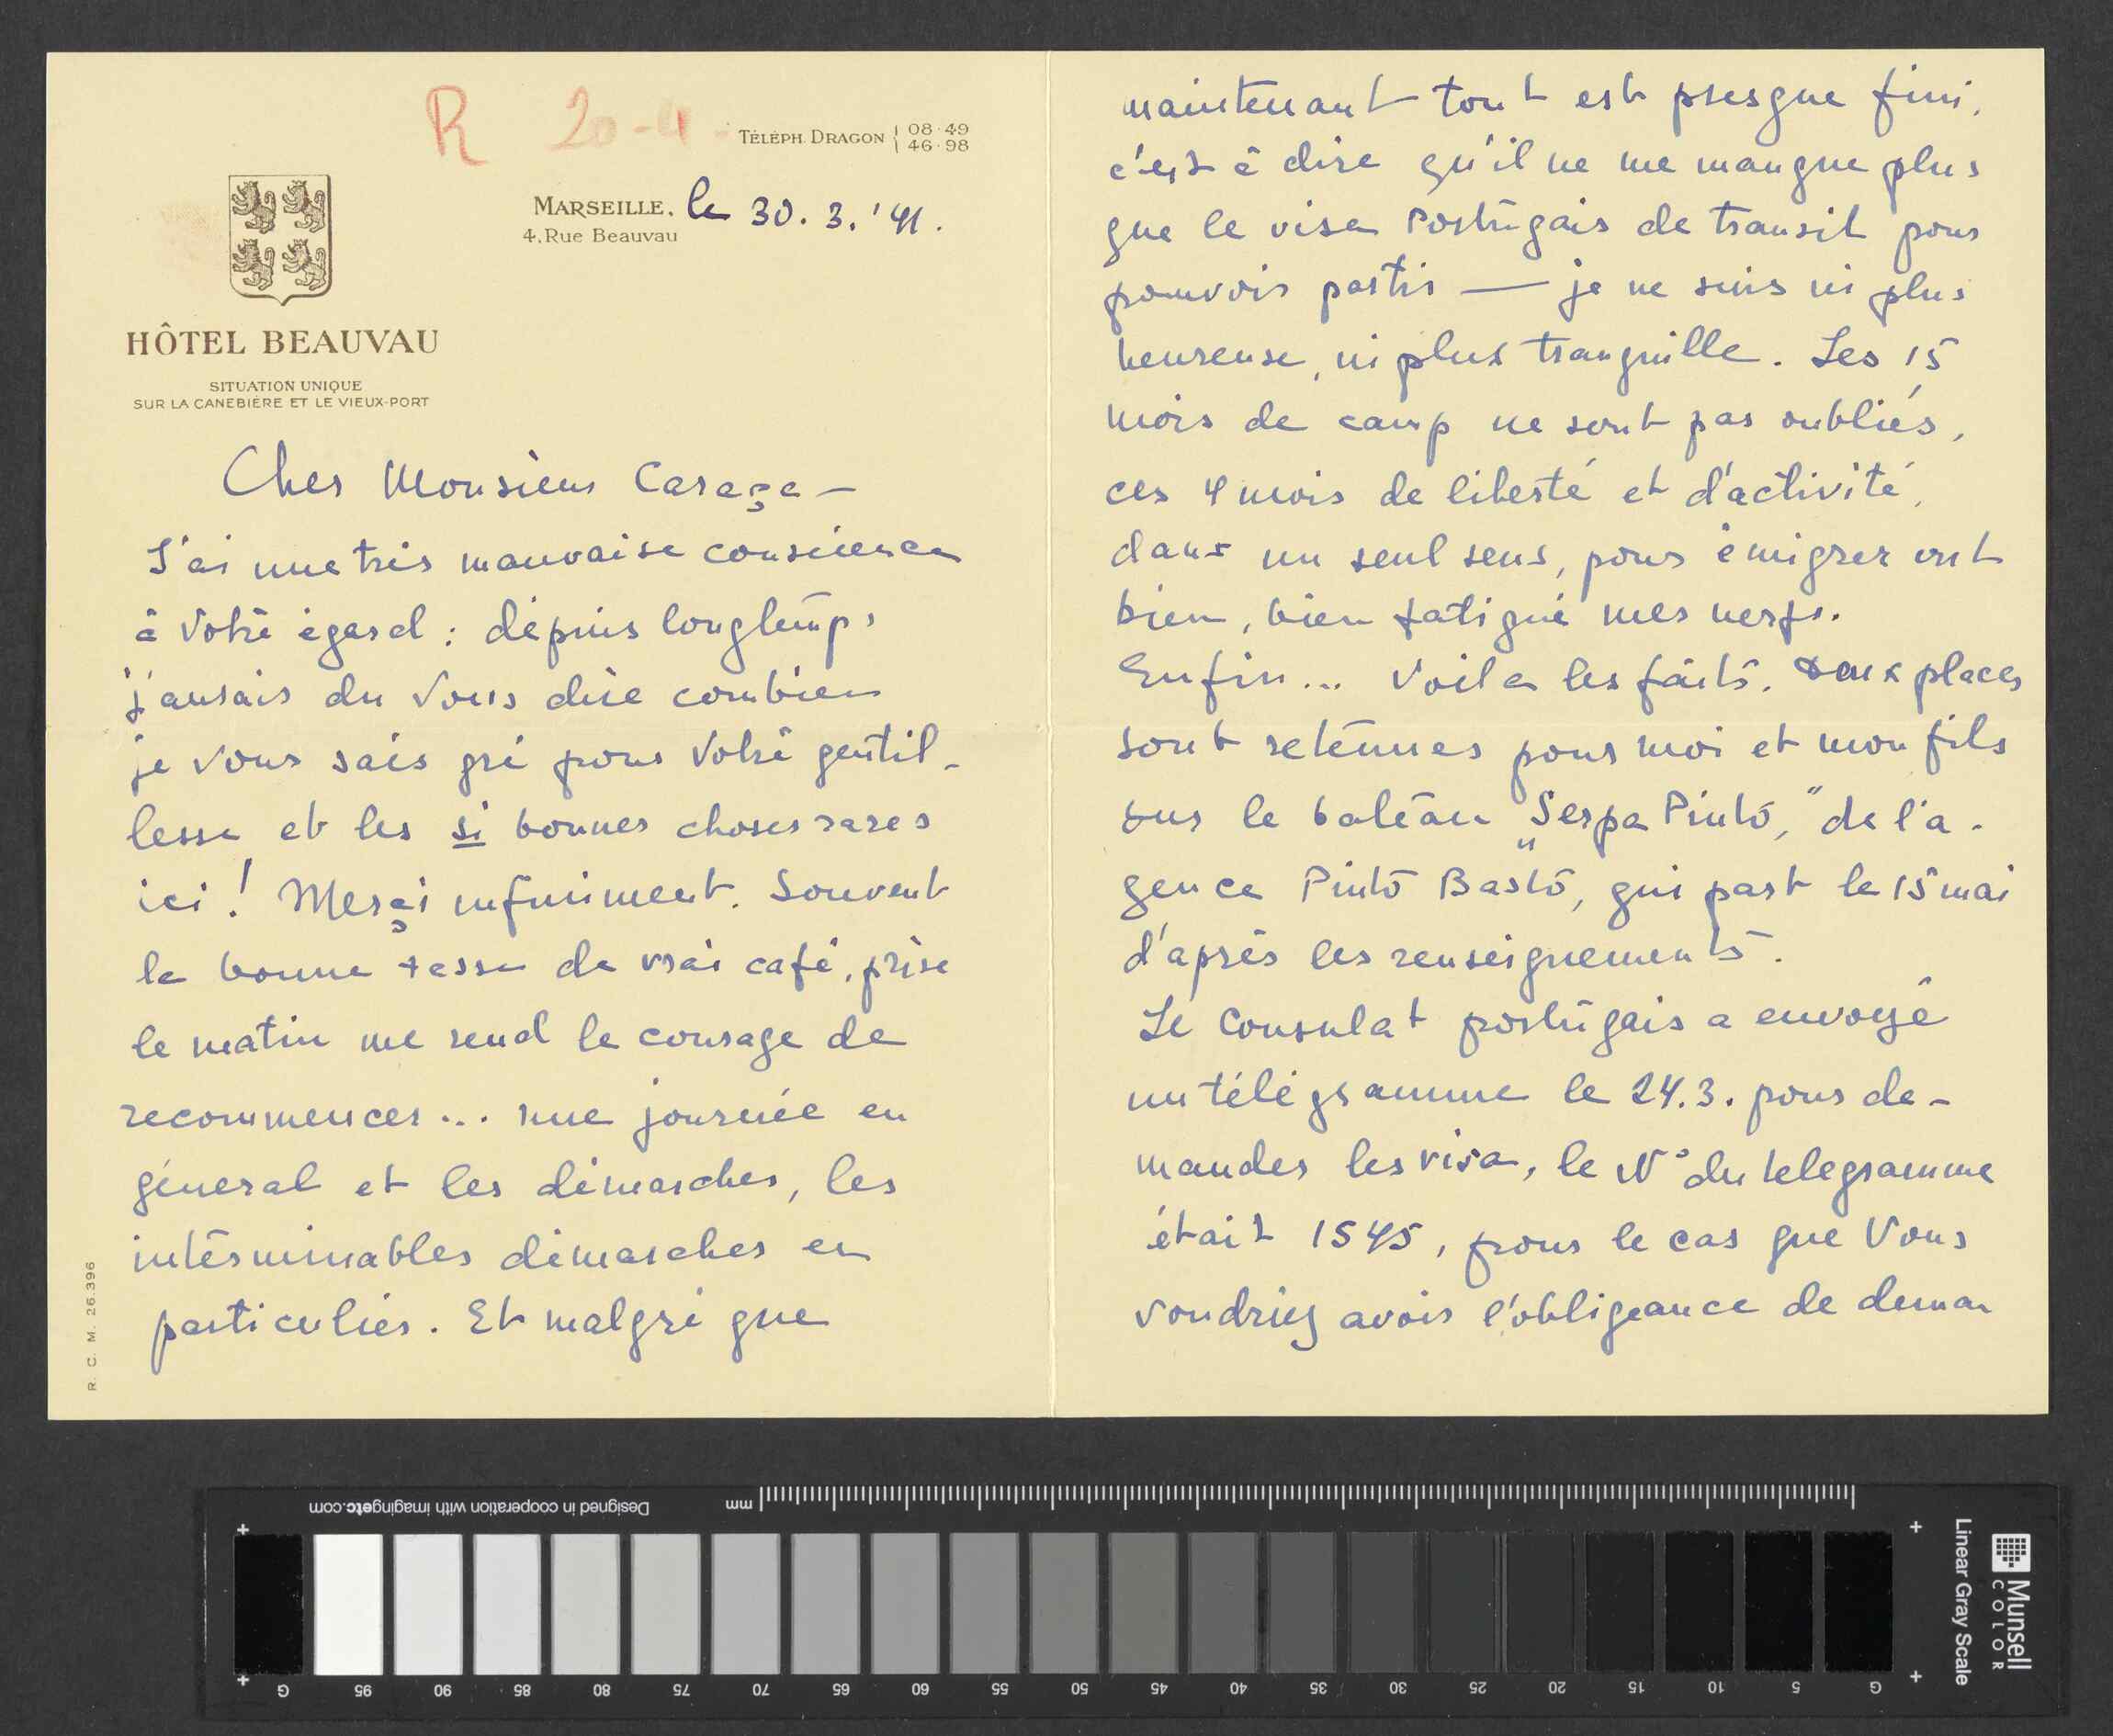 R 20-4-
TÉLÉPH. DRAGON 08·49
46·98
MARSEILLE, le 30. 3. '41.
4, Rue Beauvau
HÔTEL BEAUVAU
SITUATION UNIQUE
SUR LA CANEBIÈRE ET LE VIEUX-PORT
Cher Monsieur Caraça —
J'ai une très mauvaise conscience
à Votre égard : dépuis longtemps
j'aurais du Vous dire combien
je Vous sais gré pour Votre gentil-
lesse et les si bonnes choses rares
ici ! Merçi infiniment. Souvent
la bonne tasse de vrai café, prise
le matin me rend le courage de
recommencer... une journée en
géneral et les démarches, les
intérminables démarches en
particulier. Et malgré que
R. C. M. 26.396
maintenant tout est presque fini,
c'est à dire qu'il ne me manque plus
que le visa Portugais de transit pour
pouvoir partir — je ne suis ni plus
heureuse, ni plus tranquille. Les 15
mois de camp ne sont pas oubliés,
ces 4 mois de liberté et d'activité,
dans un seul sens, pour émigrer ont
bien, bien fatigué mes nerfs.
Enfin... Voila les faits. Deux places
sont retenues pour moi et mon fils
sur le bateau „Serpa Pinto," de l'a-
gence Pinto Basto, qui part le 15 mai
d'après les renseignements.
Le Consulat portugais a envoyé
un télégramme le 24.3. pour de-
mander les visa, le N° du telegramme
était 1545, pour le cas que Vous
voudriez avoir l'obligeance de deman
Designed in cooperation with imagingetc.com
mm
G 95 90 85 80 75 70 65 60 55 50 45 40 35 30 25 20 15 10 5 G
Linear Gray Scale
Munsell
COLOR